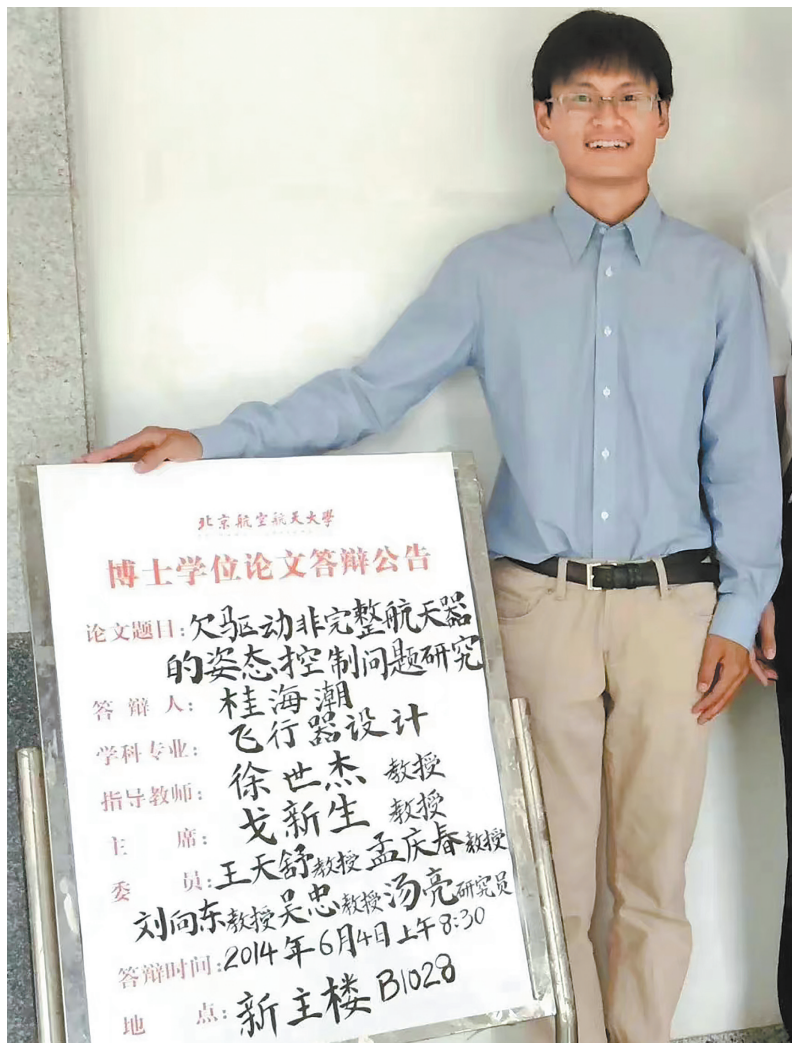 北京航空航天大學
博士学位论文答辩公告
论文题目:欠驱动非完整航天器
的姿态控制问题研究
答辩人:桂海潮
学科专业:飞行器设计
指导教师:徐世杰 教授
主席:戈新生 教授
委员:王天舒教授 孟庆春教授
刘向东教授 吴忠教授 汤亮研究员
答辩时间:2014年6月4日上午8:30
地点:新主楼 B1028